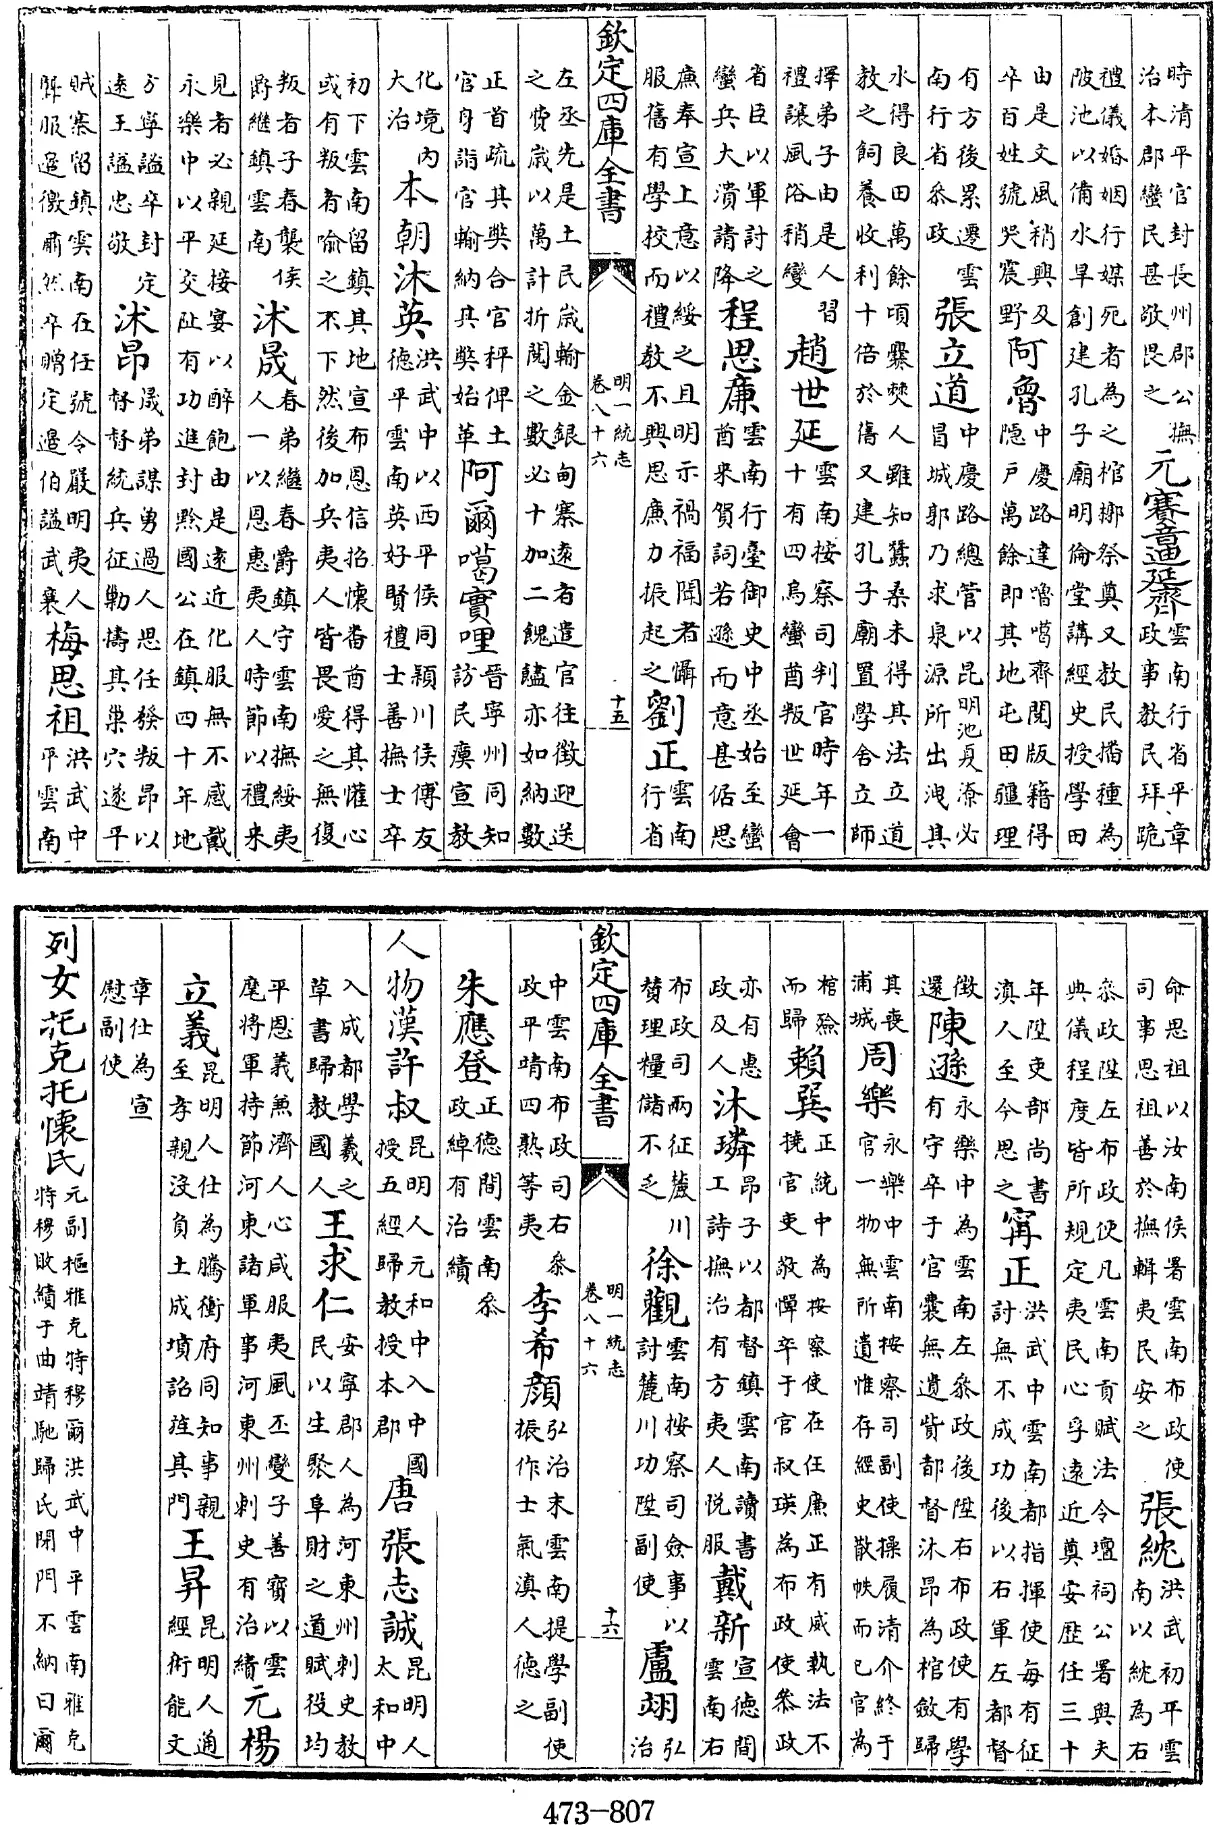 時清平官封長州郡公撫
治本郡蠻民甚敬畏之
元賽音迪延齊
雲南行省平章
政事教民拜跪
禮儀婚姻行媒死者為之棺槨祭奠又教民播種為
陂池以備水旱創建孔子廟明倫堂講經史授學田
由是文風稍興及
卒百姓號哭震野
阿魯
中慶路達嚕噶齊閱版籍得
隱戶萬餘即其地屯田疆理
有方後累遷雲
南行省叅政
張立道
中慶路總管以昆明池夏潦必
冒城郭乃求泉源所出洩其
水得良田萬餘頃爨僰人雖知蠶桑未得其法立道
教之飼養收利十倍於舊又建孔子廟置學舍立師
擇弟子由是人習
禮讓風俗稍變
趙世延
雲南按察司判官時年一
十有四烏蠻酋叛世延會
省臣以軍討之
蠻兵大潰請降
程思廉
雲南行臺御史中丞始至蠻
酋來賀詞若遜而意甚倨思
廉奉宣上意以綏之且明示禍福聞者懾
服舊有學校而禮教不興思廉力振起之
劉正
雲南
行省
欽定四庫全書
明一統志
卷八十六
十五
左丞先是土民歲輸金銀甸寨遠者遣官往徵迎送
之費歲以萬計折閱之數必十加二餽饎亦如納數
正首疏其弊合官秤俾土
官身詣官輸納其弊始革
阿爾噶實哩
晉寧州同知
訪民瘼宣教
化境內
大治
本朝沐英
洪武中以西平侯同潁川侯傅友
德平雲南英好賢禮士善撫士卒
初下雲南留鎮其地宣布恩信招懷畨酋得其懽心
或有叛者喻之不下然後加兵夷人皆畏愛之無復
叛者子春襲侯
爵繼鎮雲南
沐晟
春弟繼春爵鎮守雲南撫綏夷
人一以恩惠夷人時節以禮來
見者必親延接宴以醉飽由是遠近化服無不感戴
永樂中以平交阯有功進封黔國公在鎮四十年地
方寧謐卒封定
遠王諡忠敬
沐昂
晟弟謀勇過人思任發叛昂以
督督統兵征勦擣其巢穴遂平
賊寨留鎮雲南在任號令嚴明夷人
懾服邉徼肅然卒贈定邉伯諡武襄
梅思祖
洪武中
平雲南
命思祖以汝南侯署雲南布政使
司事思祖善於撫輯夷民安之
張紞
洪武初平雲
南以紞為右
叅政陞左布政使凡雲南貢賦法令壇祠公署與夫
典儀程度皆所規定夷民心孚遠近奠安歴任三十
年陞吏部尚書
滇人至今思之
甯正
洪武中雲南都指揮使每有征
討無不成功後以右軍左都督
徵
還
陳遜
永樂中為雲南左叅政後陞右布政使有學
有守卒于官囊無遺貲都督沐昂為棺斂歸
其喪
浦城
周樂
永樂中雲南按察司副使操履清介終于
官一物無所遺惟存經史散帙而已官為
棺殮
而歸
賴巽
正統中為按察使在任廉正有威執法不
撓官吏敬憚卒于官叔瑛為布政使叅政
亦有惠
政及人
沐璘
昂子以都督鎮雲南讀書
工詩撫治有方夷人悅服
戴新
宣德間
雲南右
布政司兩征麓川
贊理糧儲不乏
徐觀
雲南按察司僉事以
討麓川功陞副使
盧翊
弘
治
欽定四庫全書
明一統志
卷八十六
十六
中雲南布政司右叅
政平靖四熟等夷
李希顔
弘治末雲南提學副使
振作士氣滇人德之
朱應登
正德間雲南叅
政綽有治績
人物漢許叔
昆明人元和中入中國
授五經歸教授本郡
唐張志誠
昆明人
太和中
入成都學羲之
草書歸教國人
王求仁
安寧郡人為河東州刺史教
民以生聚阜財之道賦役均
平恩義兼濟人心咸服夷風丕變子善寶以雲
麾將軍持節河東諸軍事河東州刺史有治績
元楊
立義
昆明人仕為騰衝府同知事親
至孝親沒負土成墳詔旌其門
王昇
昆明人通
經術能文
章仕為宣
慰副使
列女茫克托懷氏
元副樞雅克特穆爾洪武中平雲南雅克
特穆敗績于曲靖馳歸氏閉門不納曰爾
473-807